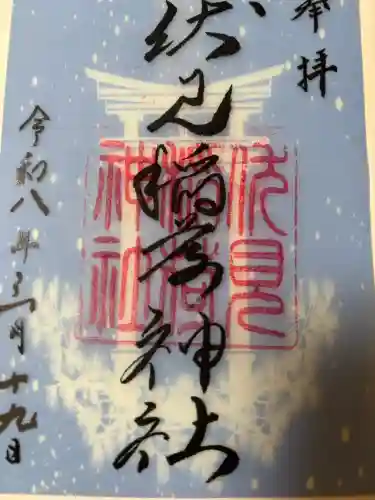 奉拝
伏見稲荷神社
伏見
稲荷
神社
令和八年
月十九日